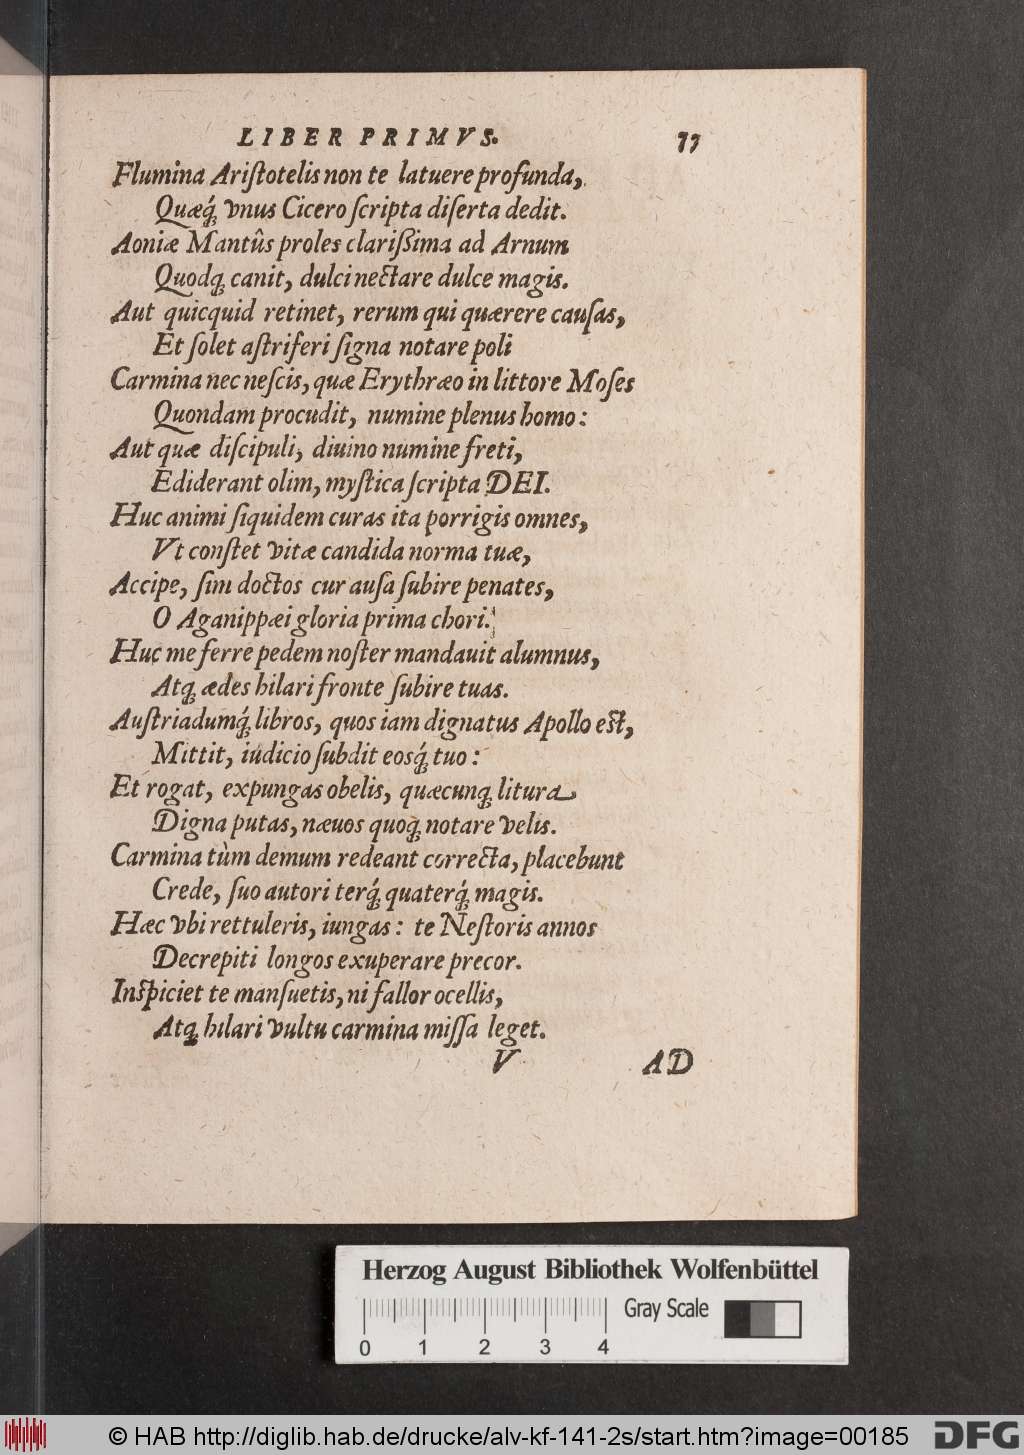 LIBER PRIMVS. 77
Flumina Ariſtotelis non te latuere profunda,
Quæq́; vnus Cicero ſcripta diſerta dedit.
Aoniæ Mantûs proles clariſsima ad Arnum
Quodq; canit, dulci nectare dulce magis.
Aut quicquid retinet, rerum qui quærere cauſas,
Et ſolet aſtriferi ſigna notare poli
Carmina nec neſcis, quæ Erythræo in littore Moſes
Quondam procudit, numine plenus homo:
Aut quæ diſcipuli, diuino numine freti,
Ediderant olim, myſtica ſcripta DEI.
Huc animi ſiquidem curas ita porrigis omnes,
Vt conſtet vitæ candida norma tuæ,
Accipe, ſim doctos cur auſa ſubire penates,
O Aganippæi gloria prima chori.
Huc me ferre pedem noſter mandauit alumnus,
Atq; ædes hilari fronte ſubire tuas.
Auſtriadumq́; libros, quos iam dignatus Apollo eſt,
Mittit, iudicio ſubdit eosq́; tuo:
Et rogat, expungas obelis, quæcunq; litura
Digna putas, næuos quoq; notare velis.
Carmina tùm demum redeant correcta, placebunt
Crede, ſuo autori terq́; quaterq́; magis.
Hæc vbi rettuleris, iungas: te Neſtoris annos
Decrepiti longos exuperare precor.
Inſpiciet te manſuetis, ni fallor ocellis,
Atq; hilari vultu carmina miſſa leget.
V AD
Herzog August Bibliothek Wolfenbüttel
Gray Scale
0 1 2 3 4
© HAB http://diglib.hab.de/drucke/alv-kf-141-2s/start.htm?image=00185
DFG